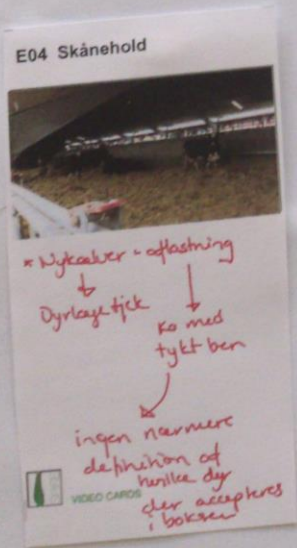 E04 Skånehold
* Nykælver - aflastning
Dyrlægetjek
Ko med
tykt ben
ingen nærmere
definition af
hvilke dyr
der accepteres
i boksen
VIDEO CARDS